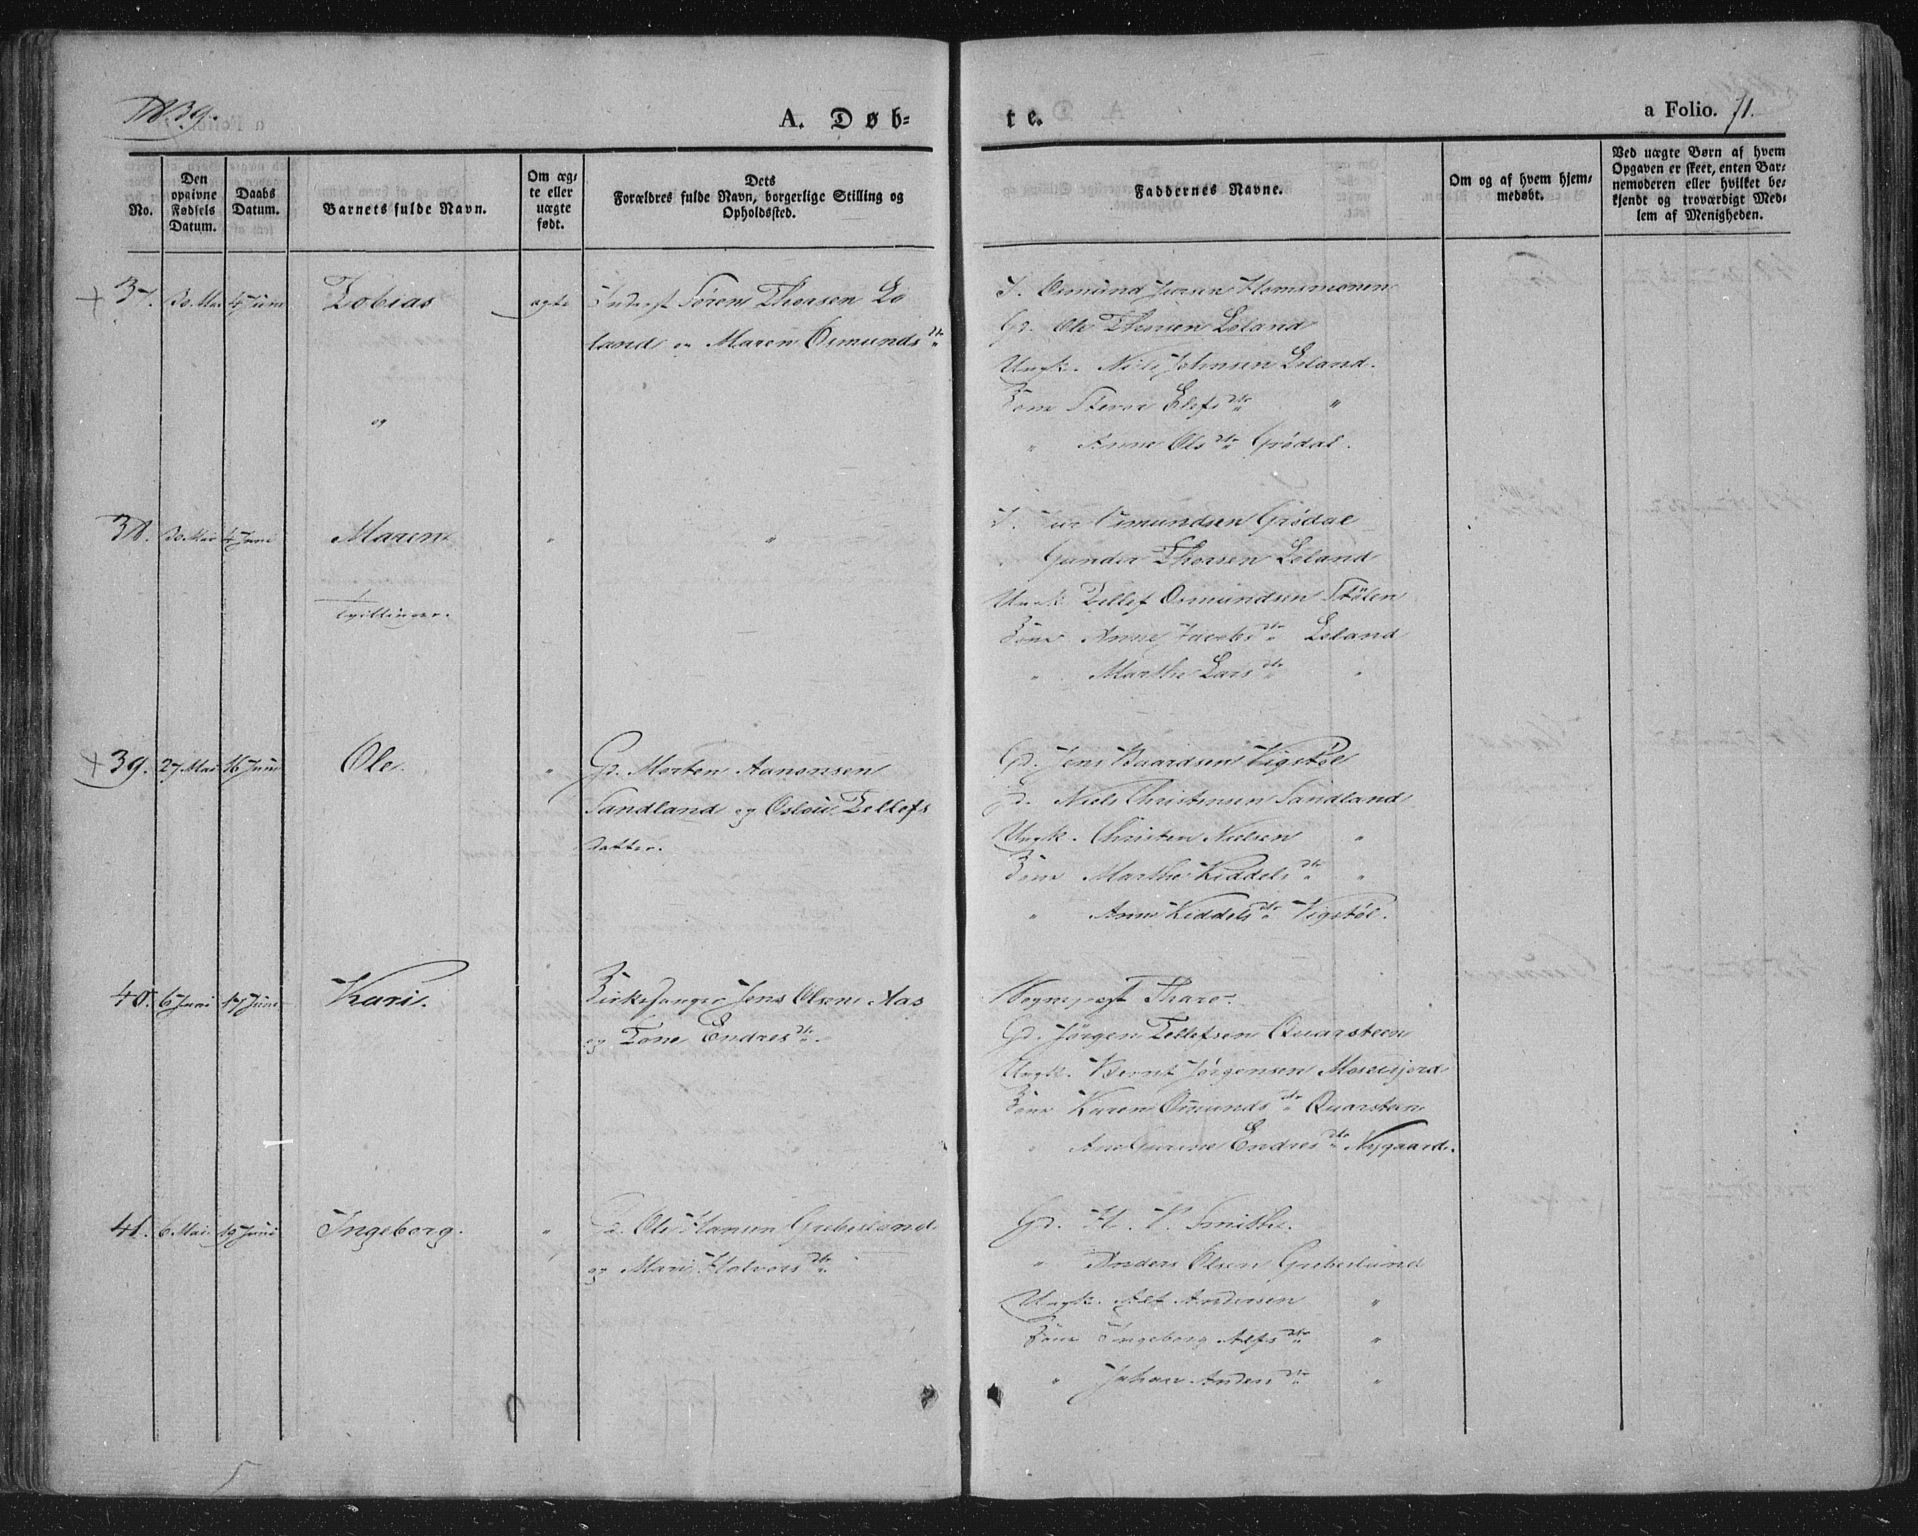 1839.
A. Døb-
te.
a Folio. 71.
No.
Den opgivne Fødsels Datum.
Daabs Datum.
Barnets fulde Navn.
Om æg-
te eller
uægte
født.
Dets
Forældres fulde Navn, borgerlige Stilling og
Opholdssted.
Faddernes Navne.
Om og af hvem hjem-
medøbt.
Ved uægte Børn af hvem
Opgaven er skeet, enten Bar-
nemoderen eller hvilket be-
kjendt og troværdigt Med-
lem af Menigheden.
37. 30 Mai 4 Juni Tobias ægte Søren Thorsen Le
land og Maren Osmunds dtr
og
Osmund Jversen Homsmonen
Gd. Ole Thorsen Leland
Ungk. Niels Johnsen Leland.
Kone Elefs dtr "
" Anne Ols dtr Grødal.
38. 30 Mai 4 Juni Maren " "
tvillinger.
Osmundsen Grødal
Gunder Thorsen Leland
Ungk Tellef Osmundsen Stølen
Kone Anne Jacobs dtr Leland
" Marthe Lars dtr "
39. 27 Mai 16 Juni Ole. " Gd. Morten Aanonsen
Sandland og Oslou Tellefs
datter.
Gd. Jens Baardsen Vigstøl
Gd. Niels Christensen Sandland
Ungk. Christen Nielsen "
Kone Marthe Kiddels dtr "
" Anne Kiddels dtr Vigstøl.
40. 6 Juni 17 Juni Kari. " Kirkesanger Jens Olsen Aas
og Tone Endres dtr.
Sognepræst
Gd. Jørgen Tellefsen Quarsteen
Ungk. Bernt Jørgensen Mosefjord
Kone Karen Osmunds dtr Quarsteen
" Endres dtr Nygaard.
41. 6 Mai 19 Juni Ingeborg. " Gd. Ole Hansen Grebeslund
og Mari Halvors dtr
Gd. H. V. Smith.
" Anders Olsen Grebeslund
Ungk. Alf Andersen "
Kone Ingeborg Alfs dtr "
" Johan Anders dtr "